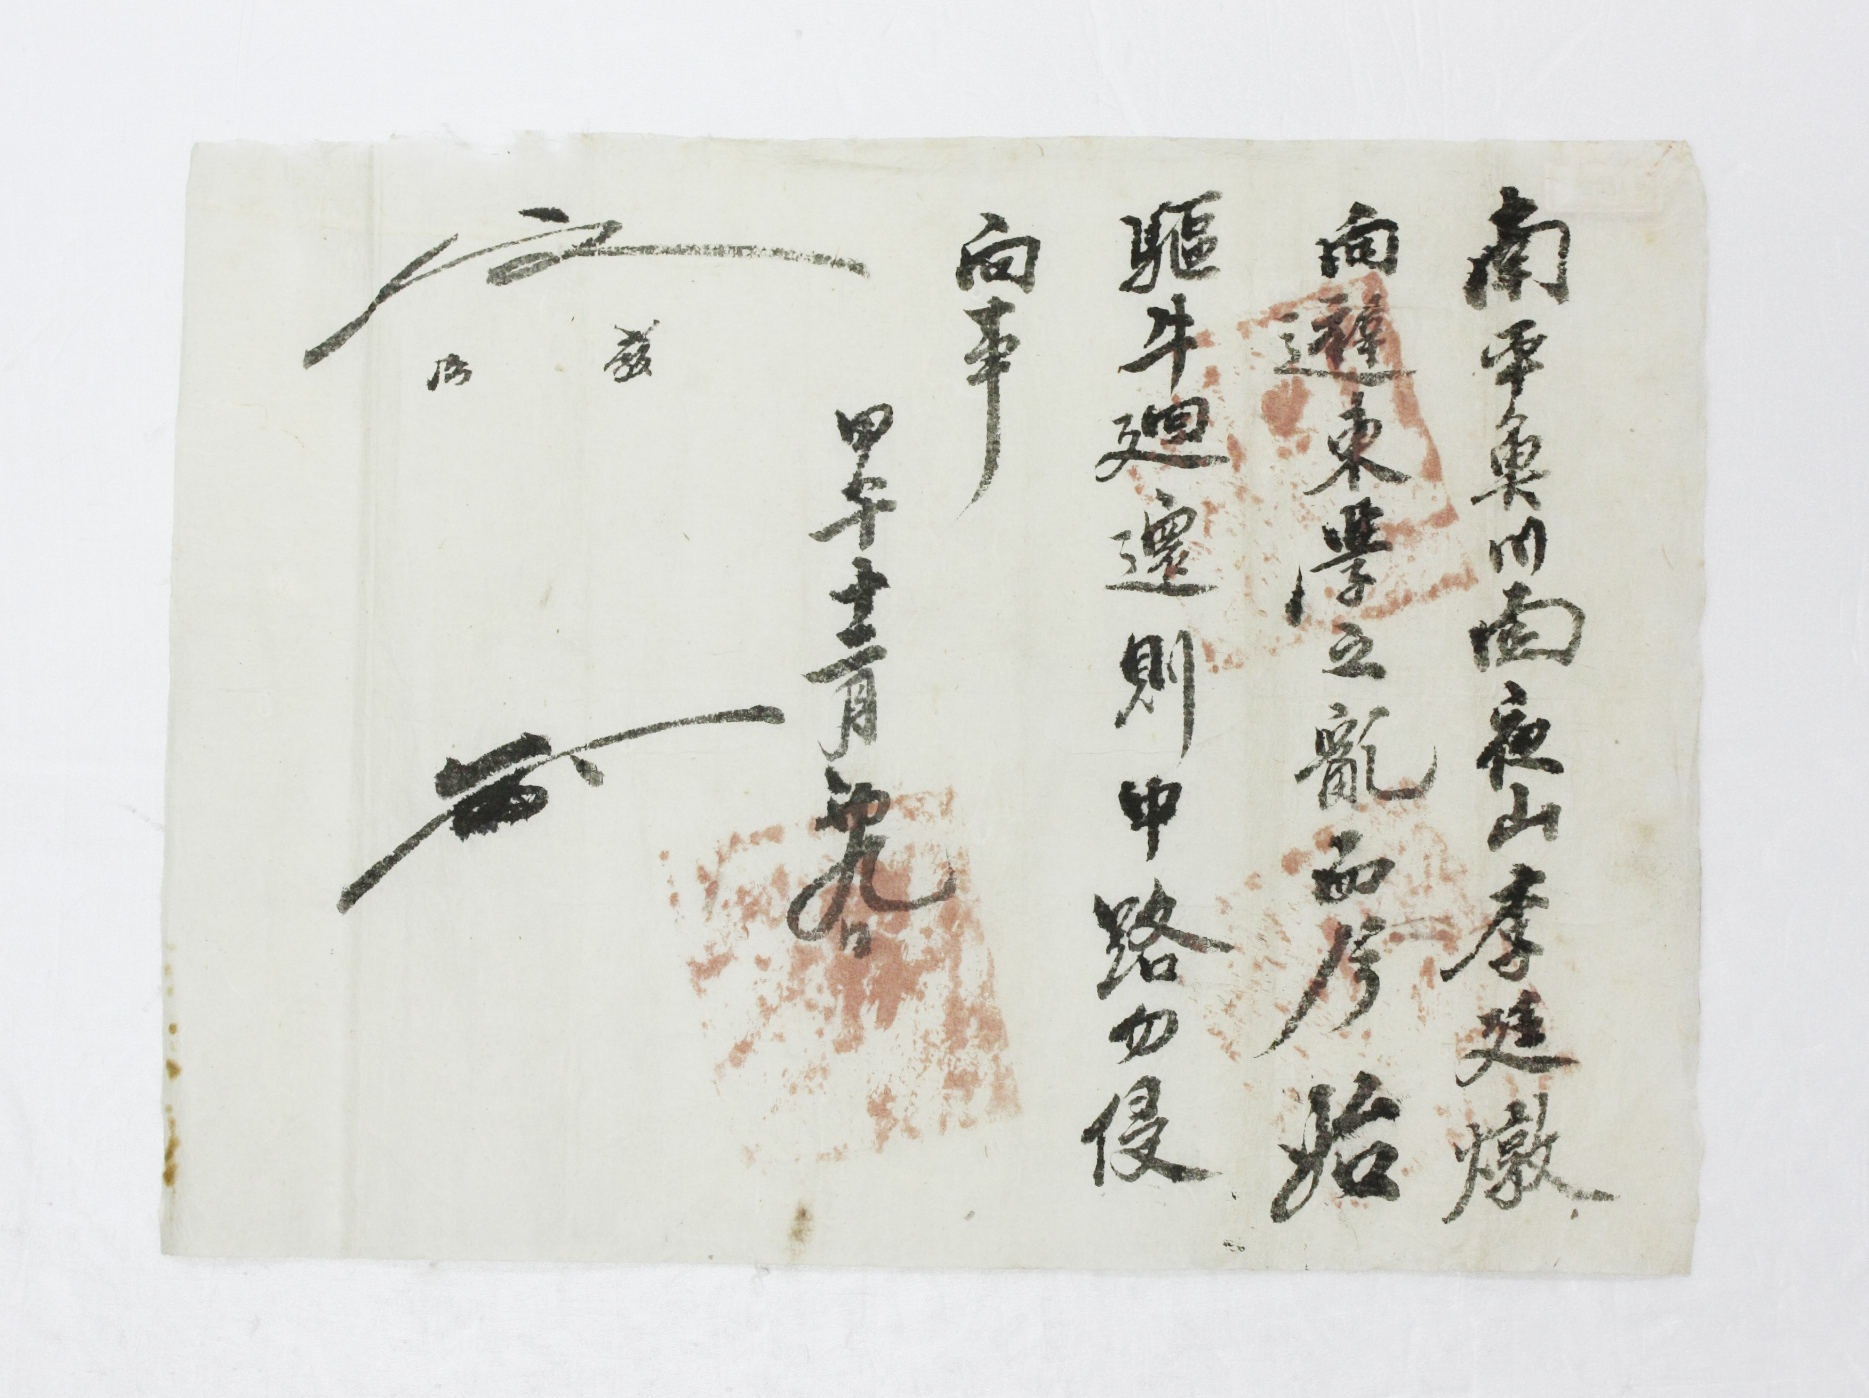 南平魚川面夜山李廷燉
向避東學之亂而今始
驅牛廻還則中路勿侵
向事
甲午十二月初九日